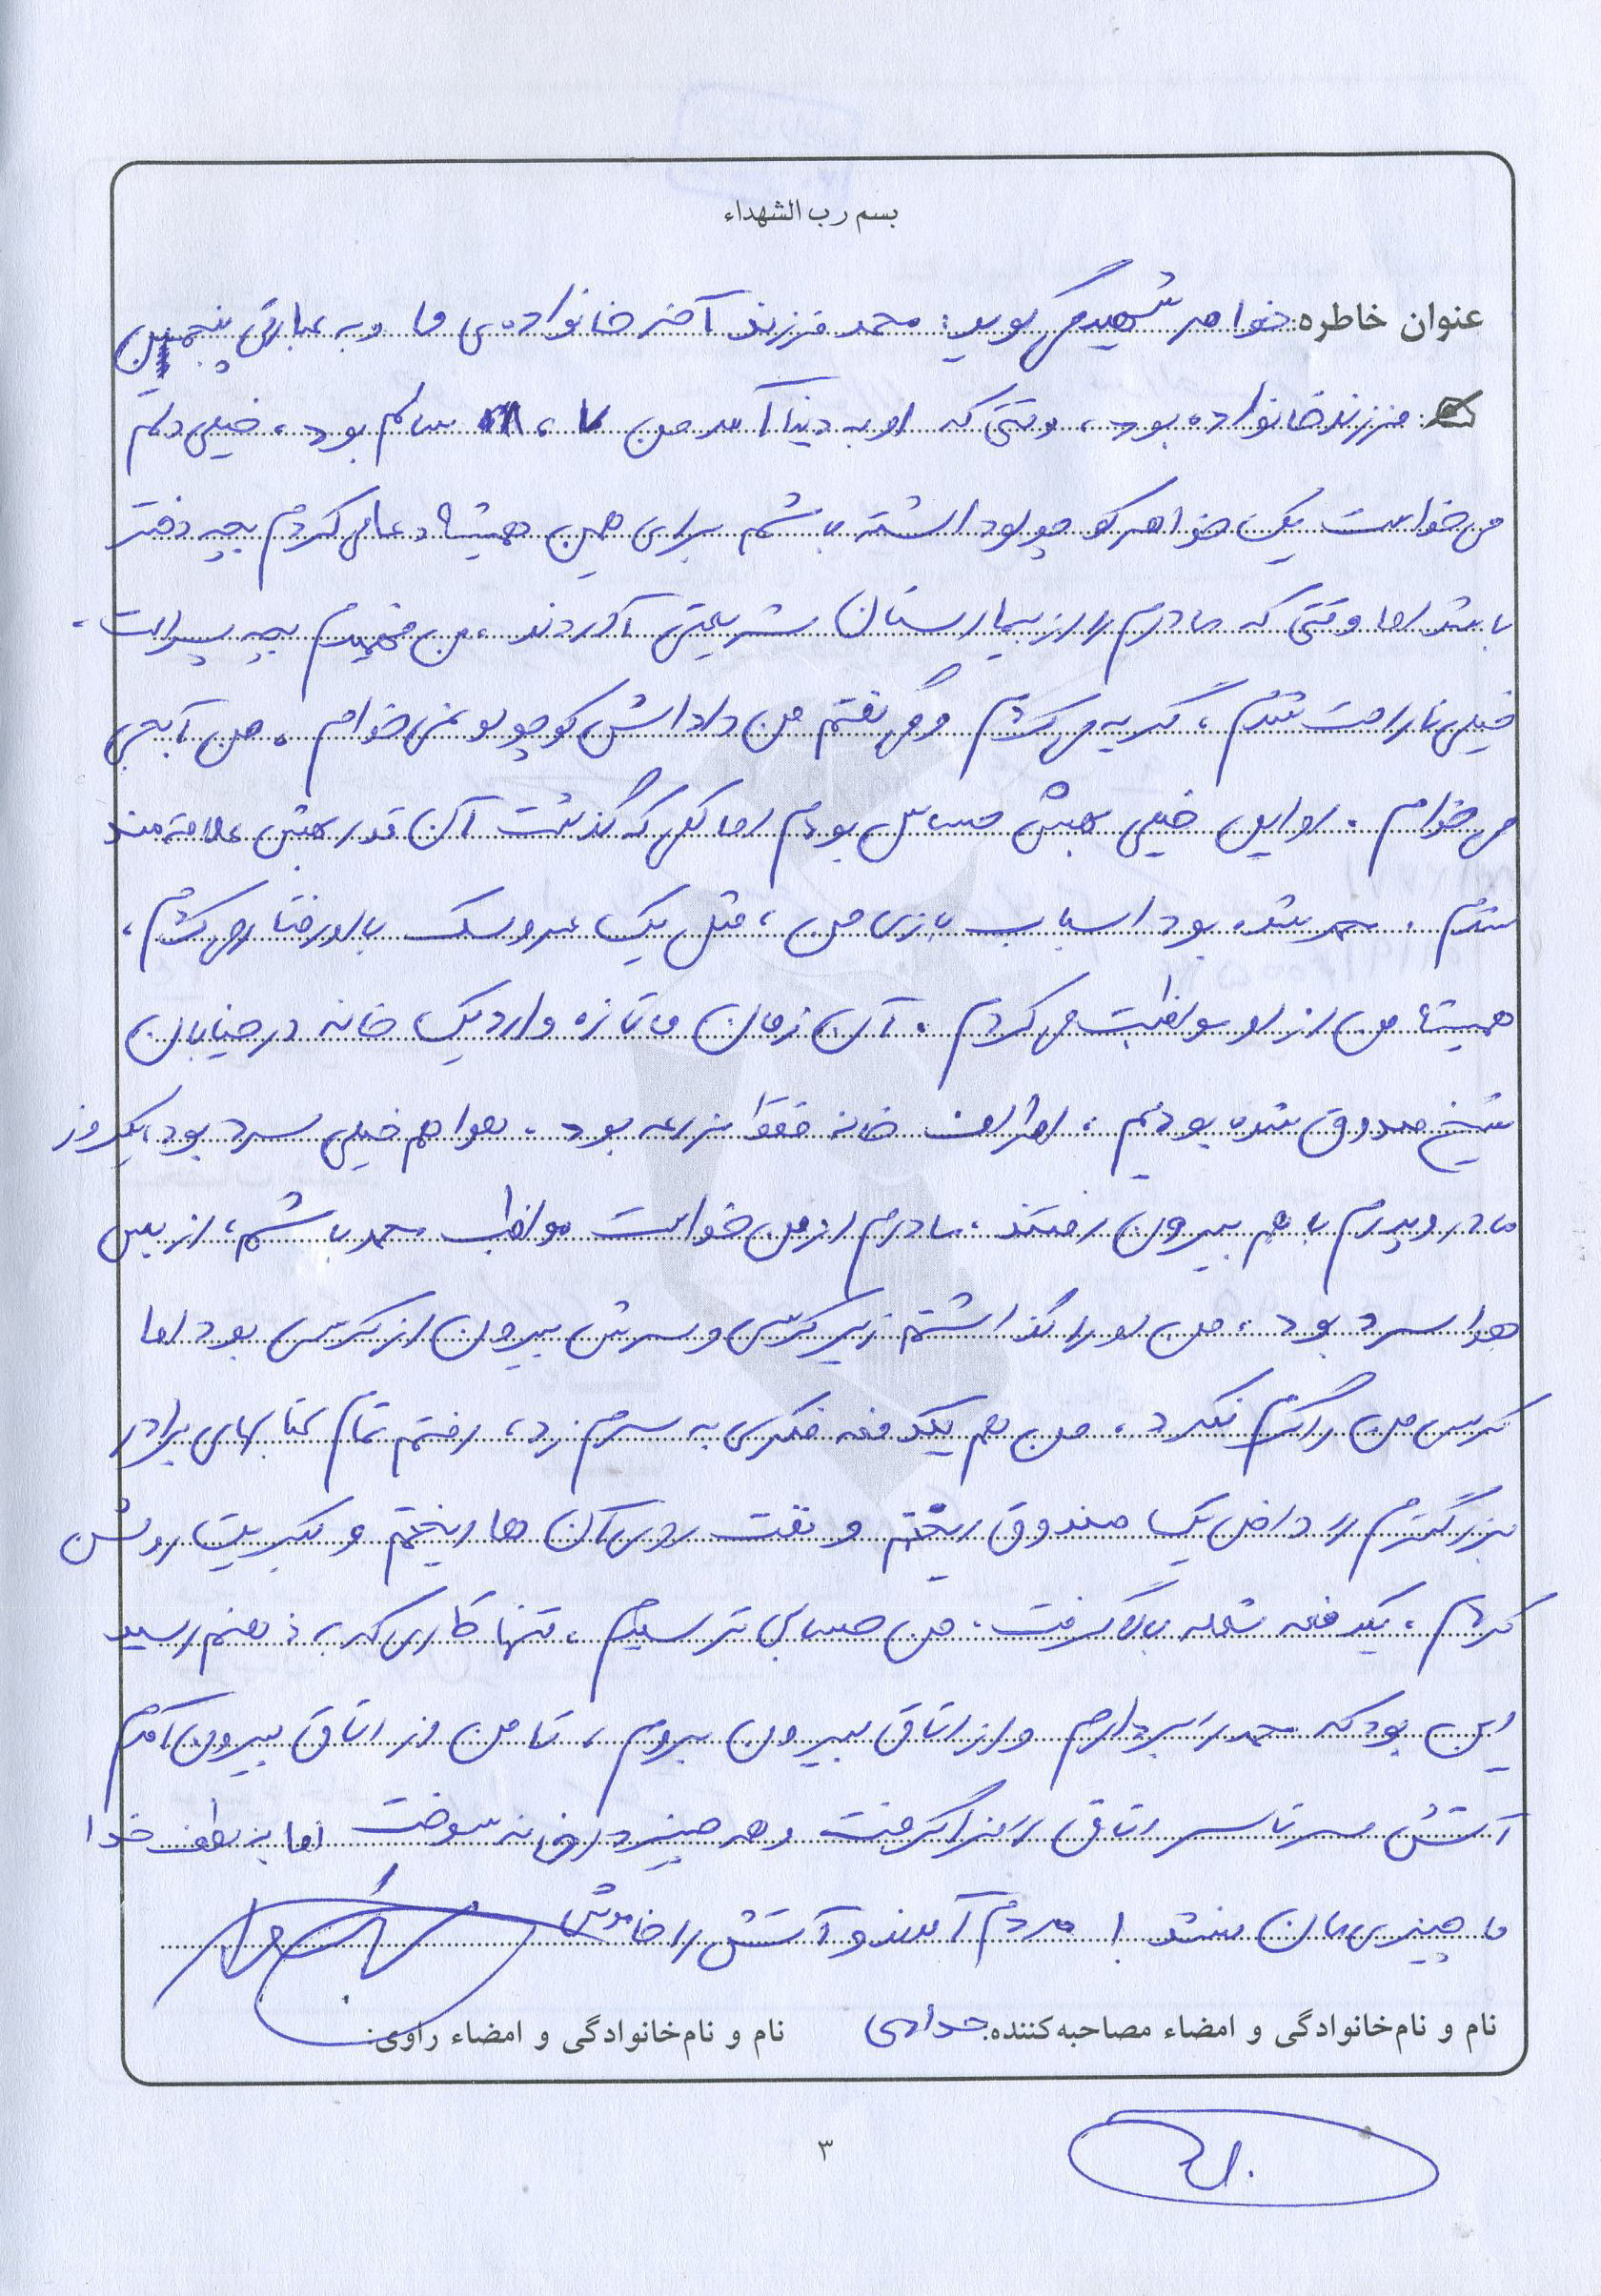 بسم رب الشهداء
عنوان خاطره: خواهر شهید می گوید: محمد فرزند آخر خانواده ی ما و به عبارتی پنجمین
فرزند خانواده بود، وقتی که او به دنیا آمد من ۷، ۸ سالم بود، خیلی دلم
می خواست یک خواهر کوچولو داشته باشم برای همین همیشه دعا می کردم بچه دختر
باشد اما وقتی که مادرم را از بیمارستان شریعتی آوردند، من فهمیدم بچه پسر است.
خیلی ناراحت شدم، گریه می کردم و می گفتم من داداش کوچولو نمی خوام. من آبجی
می خوام. اوایل خیلی بهش حساس بودم اما کمی که گذشت آن قدر بهش علاقه مند
شدم. محمد شده بود اسباب بازی من، مثل یک عروسک با او رفتار می کردم،
همیشه من از او مواظبت می کردم. آن زمان ما تازه وارد یک خانه در خیابان
شیخ صدوق شده بودیم، اطراف خانه فقط مزرعه بود. هوا هم خیلی سرد بود، یکروز
مادر و پدرم با هم بیرون رفتند. مادرم از من خواست مواظب محمد باشم، از بس
هوا سرد بود، من او را گذاشتم زیر کرسی و سرش بیرون از کرسی بود اما
کرسی من را گرم نکرد، من هم یکدفعه فکری به سرم زد، رفتم تمام کتابهای برادر
بزرگترم را داخل یک صندوق ریختم و نفت روی آن ها ریختم و کبریت روشن
کردم، یکدفعه شعله بالا گرفت، من حسابی ترسیدم، تنها کاری که به ذهنم رسید
این بود که محمد را بردارم و از اتاق بیرون بروم، تا من از اتاق بیرون آمدم
آتش سرتاسر اتاق را فرا گرفت و هر چیز در خانه سوخت اما به لطف خدا
ما چیزی مان نشد! مردم آمدند و آتش را خاموش
نام و نام‌خانوادگی و امضاء مصاحبه‌کننده: نام و نام‌خانوادگی و امضاء راوی:
۳